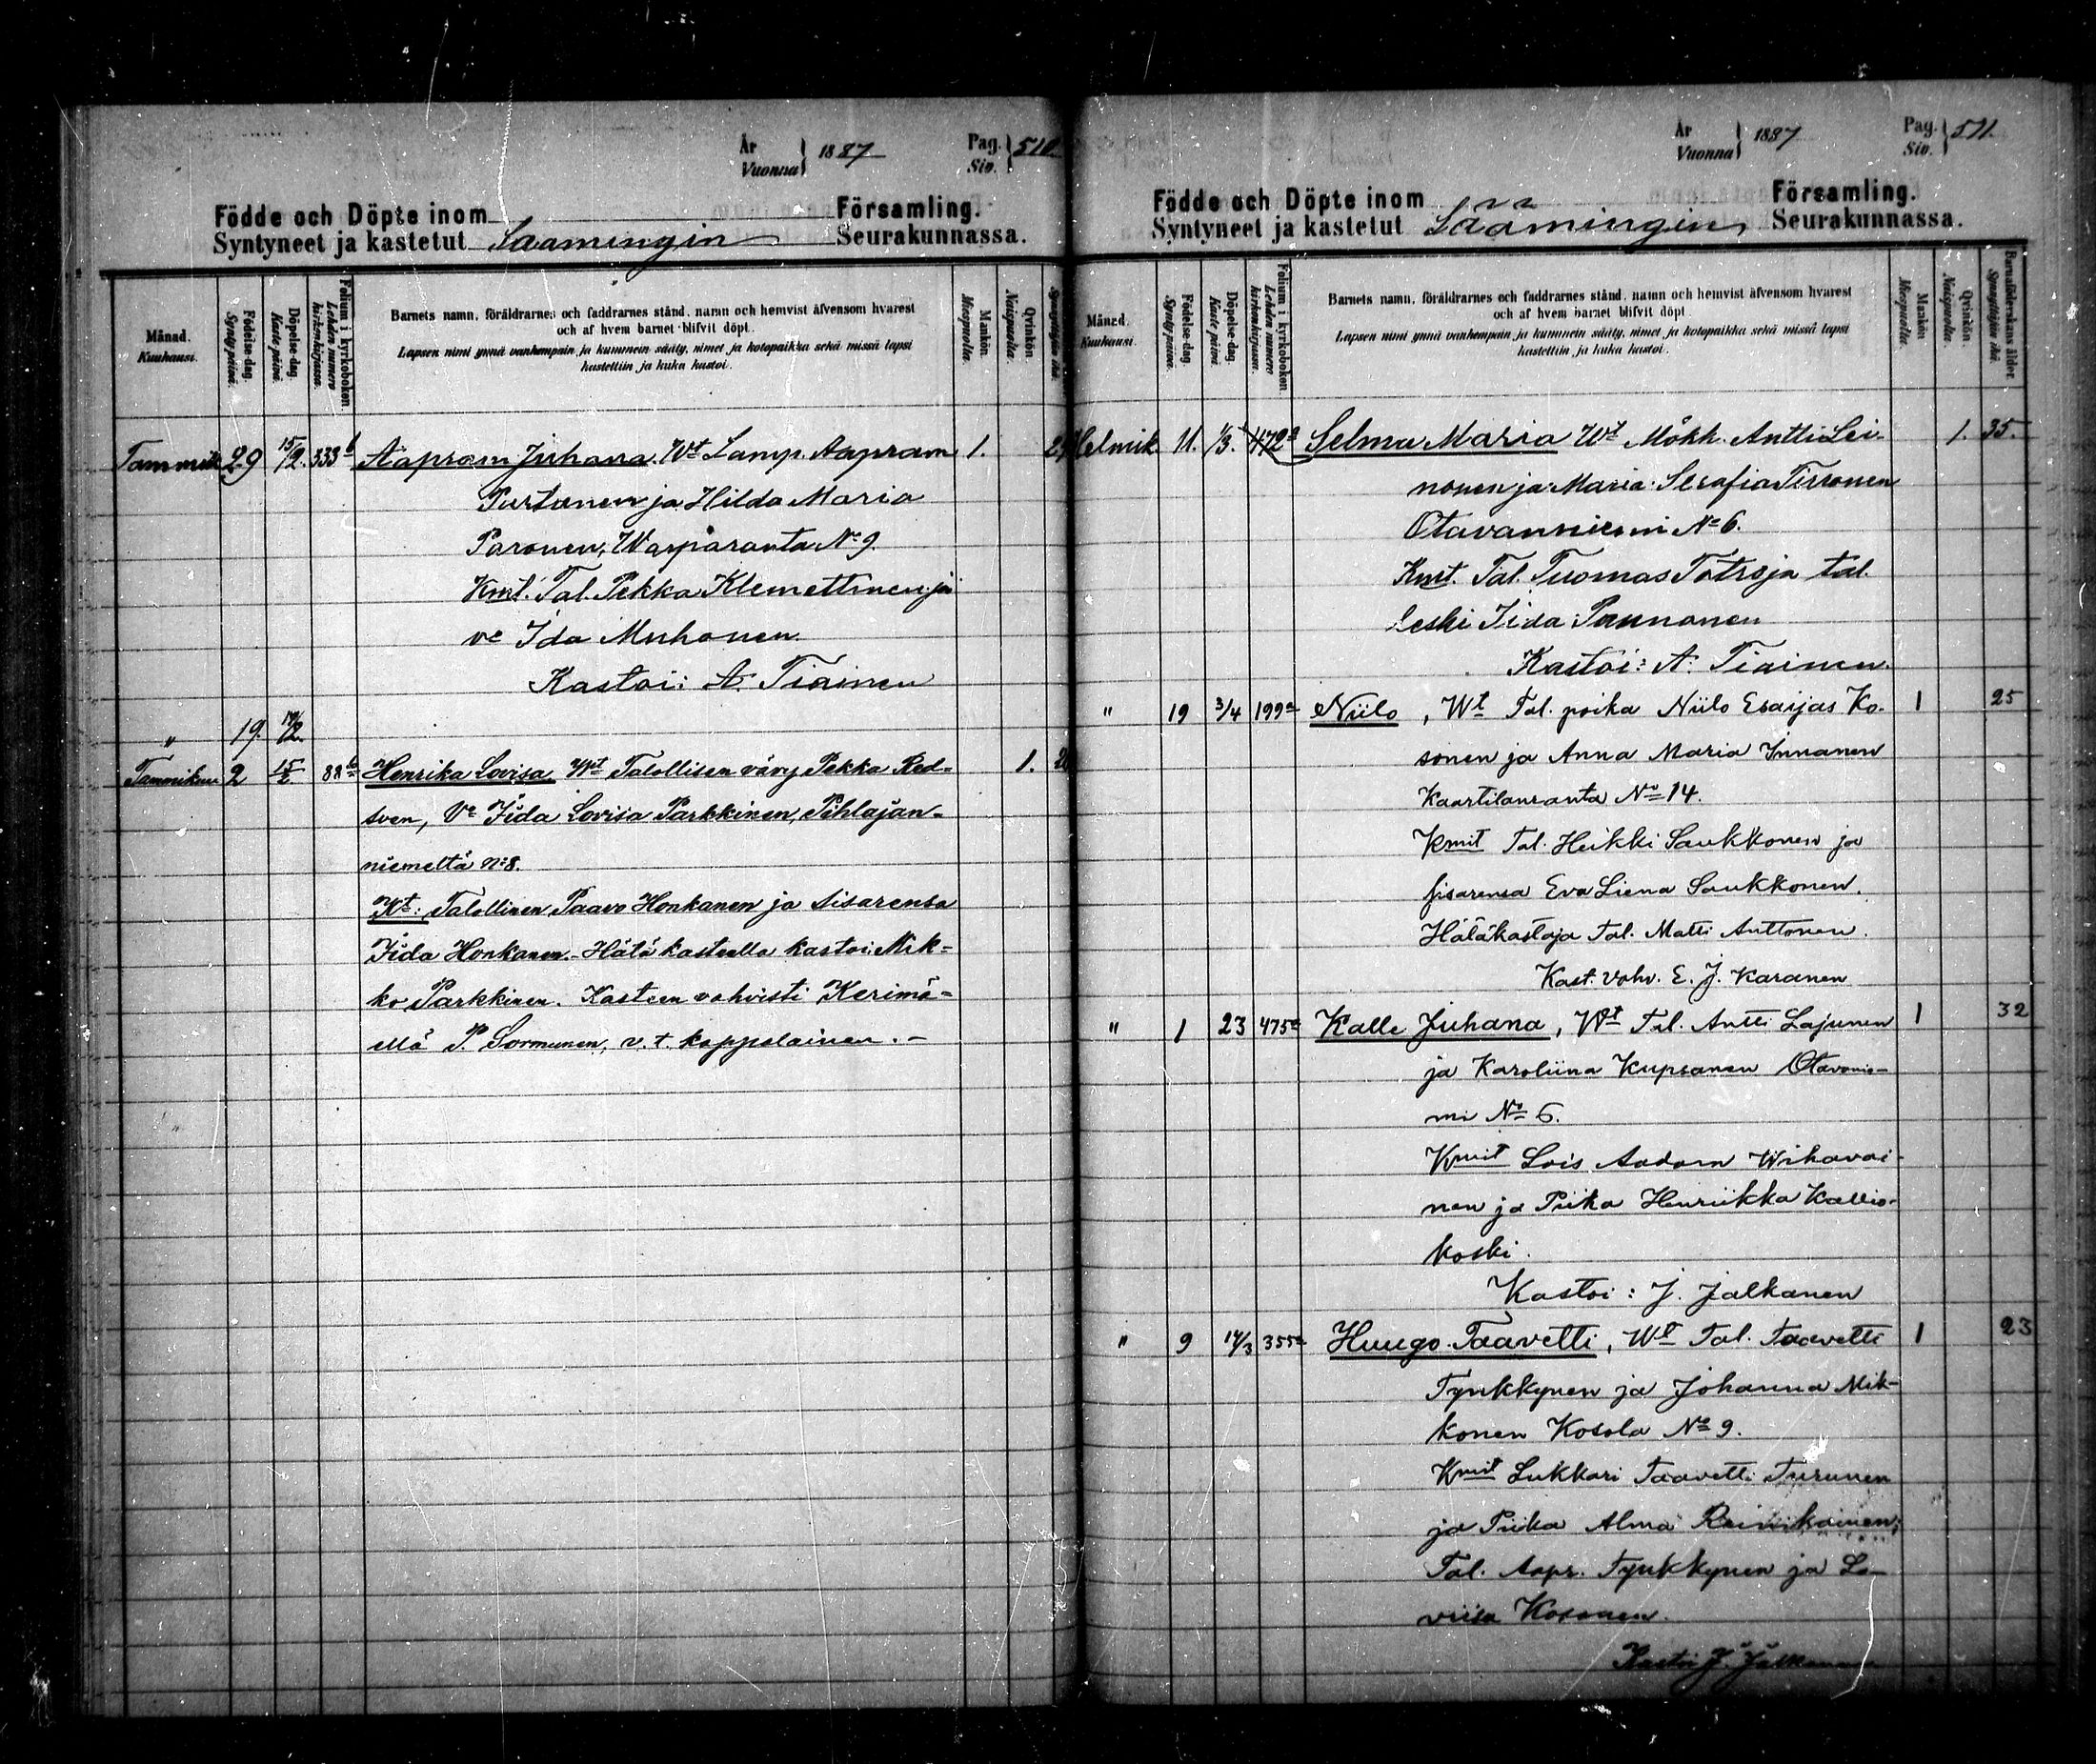 År Vuonna 1887 Pag. Siv. 510
Födde och Döpte inom Församling.
Syntyneet ja kastetut Säämingin Seurakunnassa.
Månad. Kuukausi.
Födelse-dag. Syntypäivä.
Döpelse-dag. Kastepäivä.
Folium i kyrkoboken. Lehden numero kirkonkirjassa.
Barnets namn, föräldrarnes och faddrarnes stånd, namn och hemvist äfvensom hvarest
och af hvem barnet blifvit döpt.
Lapsen nimi ynnä vanhempain ja kummein sääty, nimet ja kotopaikka sekä missä lapsi
kastettiin ja kuka kastoi.
Mankön. Miespuolta.
Qvinkön. Naispuolta.
Tammik 29 15/2. 333 b Aapram Juhana. Wt Lamp. Aapram 1.
Purtanen ja Hilda Maria
Paronen, Warparanta No 9.
Kmt. Tal. Pekka Klemettinen ja
vo Ida Muhonen
Kastoi: A. Tiainen
" 19. 19/2.
Tammikuu 2 15/2 88 b Henrika Lovisa Wt Talollisen vävy Pekka Red- 1.
sven, Vo Iida Lovisa Parkkinen, Pihlajan-
niemeltä No 8.
Kt: Talollinen Paavo Honkanen ja sisarensa
Iida Honkanen. - Hätäkasteella kastoi Mik-
ko Parkkinen. Kasteen vahvisti Kerimä-
ellä P. Sormunen, v. t. kappalainen. -
År Vuonna 1887 Pag. Siv. 511.
Födde och Döpte inom Församling.
Syntyneet ja kastetut Sääminginn Seurakunnassa.
Månad. Kuukausi.
Födelse-dag. Syntypäivä.
Döpelse-dag. Kastepäivä.
Folium i kyrkoboken. Lehden numero kirkonkirjassa.
Barnets namn, föräldrarnes och faddrarnes stånd, namn och hemvist äfvensom hvarest
och af hvem barnet blifvit döpt.
Lapsen nimi ynnä vanhempain ja kummein sääty, nimet ja kotopaikka sekä missä lapsi
kastettiin ja kuka kastoi.
Mankön Miespuolta.
Qvinkön. Naispuolta.
Barnaföderskans ålder. Synnyttäjän ikä.
Helmik. 11. 1/3. 472 a Selma Maria Wt Mökk. Antti Lei- 1. 35.
nonen ja Maria Serafia Tirronen
Otavanniemi No 6.
Kmt. Tal. Tuomas Tötrö ja tal.
leski Iida Paunonen
Kastoi: A. Tiainen.
" 19 3/4 199 a Niilo, Wt Tal. poika Niilo Esaijas Ko- 1 25
sonen ja Anna Maria Innanen
Kaartilanranta No 14.
Kmit Tal. Heikki Saukkonen ja
sisarensa Eva Liena Saukkonen.
Hätäkastaja tal. Matti Anttonen.
Kast. vahv. E. J. Karanen
" 1 23 475 a Kalle Juhana, Wt Tal. Antti Lajunen 1 32
ja Karoliina Kupsanen Otavanie-
mi No 6.
Kmit Lois Aadam Wihavai-
nen ja Piika Henriikka Kallio-
koski.
Kastoi: J. Jalkanen
" 9 14/3 355 a Huugo Taavetti, Wt Tal. Taavetti 1 23
Tynkkynen ja Johanna Mik-
konen Kosola No 9.
Kmit Lukkari Taavetti Turunen
ja Piika Alma Reinikainen;
Tal. Aapr. Tynkkynen ja Lo-
viisa Kosonen.
Kastoi J. Jalkanen